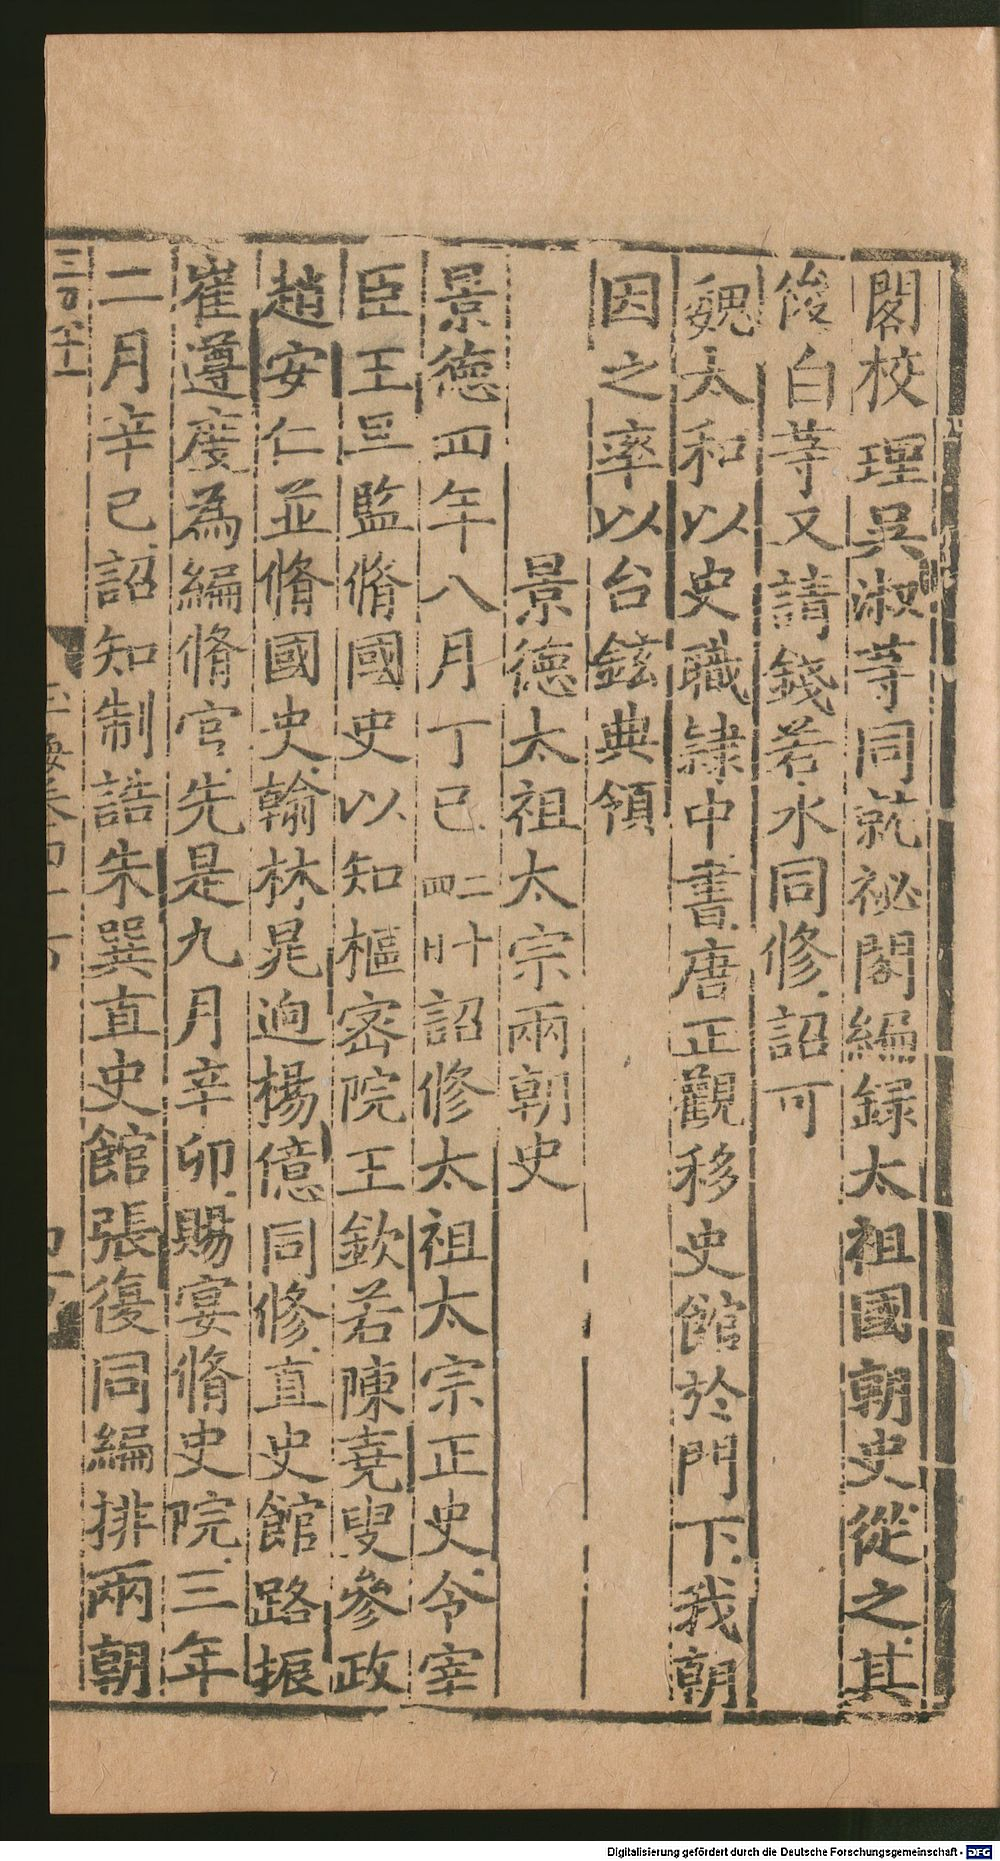 閣校理吳淑等同就祕閣編録太祖國朝史從之其
後白等又請錢若水同修詔可
魏太和以史職隷中書唐正觀移史館於門下我朝
因之率以台鉉典領
景德太祖太宗兩朝史
景德四年八月丁巳二十四日詔修太祖太宗正史令宰
臣王旦監脩國史以知樞密院王欽若陳堯叟參政
趙安仁並脩國史翰林晁迥楊億同修直史館路振
崔遵度為編脩官先是九月辛卯賜宴脩史院三年
二月辛巳詔知制誥朱巽直史館張復同編排兩朝
三百八十一
Digitalisierung gefördert durch die Deutsche Forschungsgemeinschaft - DFG